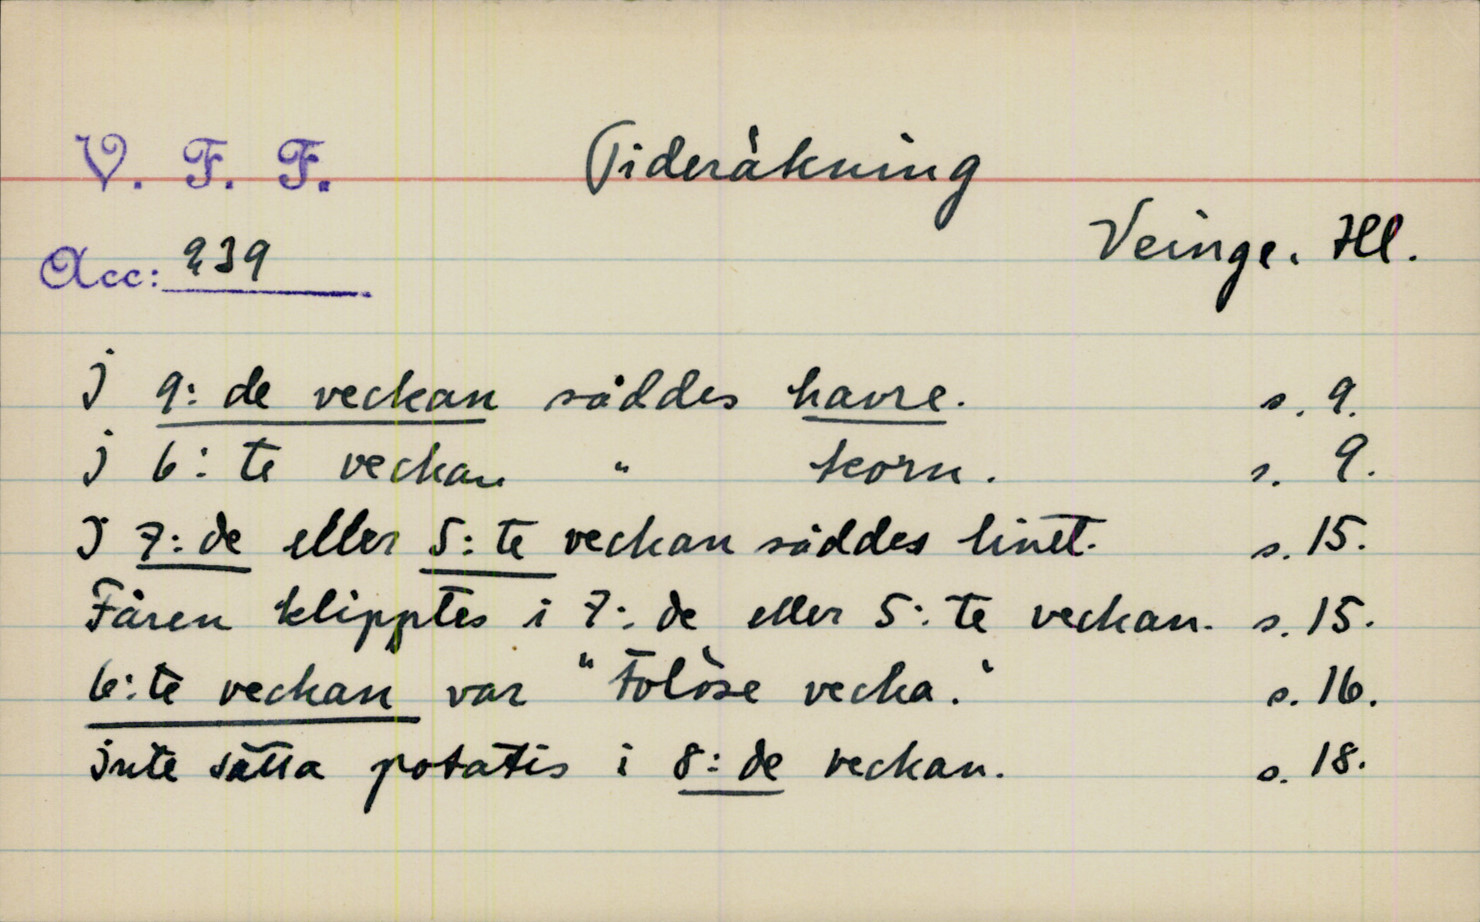 V. F. F.
Tideräkning
Veinge. Hl.
Acc: 239
I 9:de veckan såddes havre. s. 9.
I 6:te veckan " korn. s. 9.
I 7:de eller 5:te veckan såddes linet. s. 15.
Fåren klipptes i 7:de eller 5:te veckan. s. 15.
6:te veckan var "Tolöse vecka." s. 16.
Inte sätta potatis i 8:de veckan. s. 18.